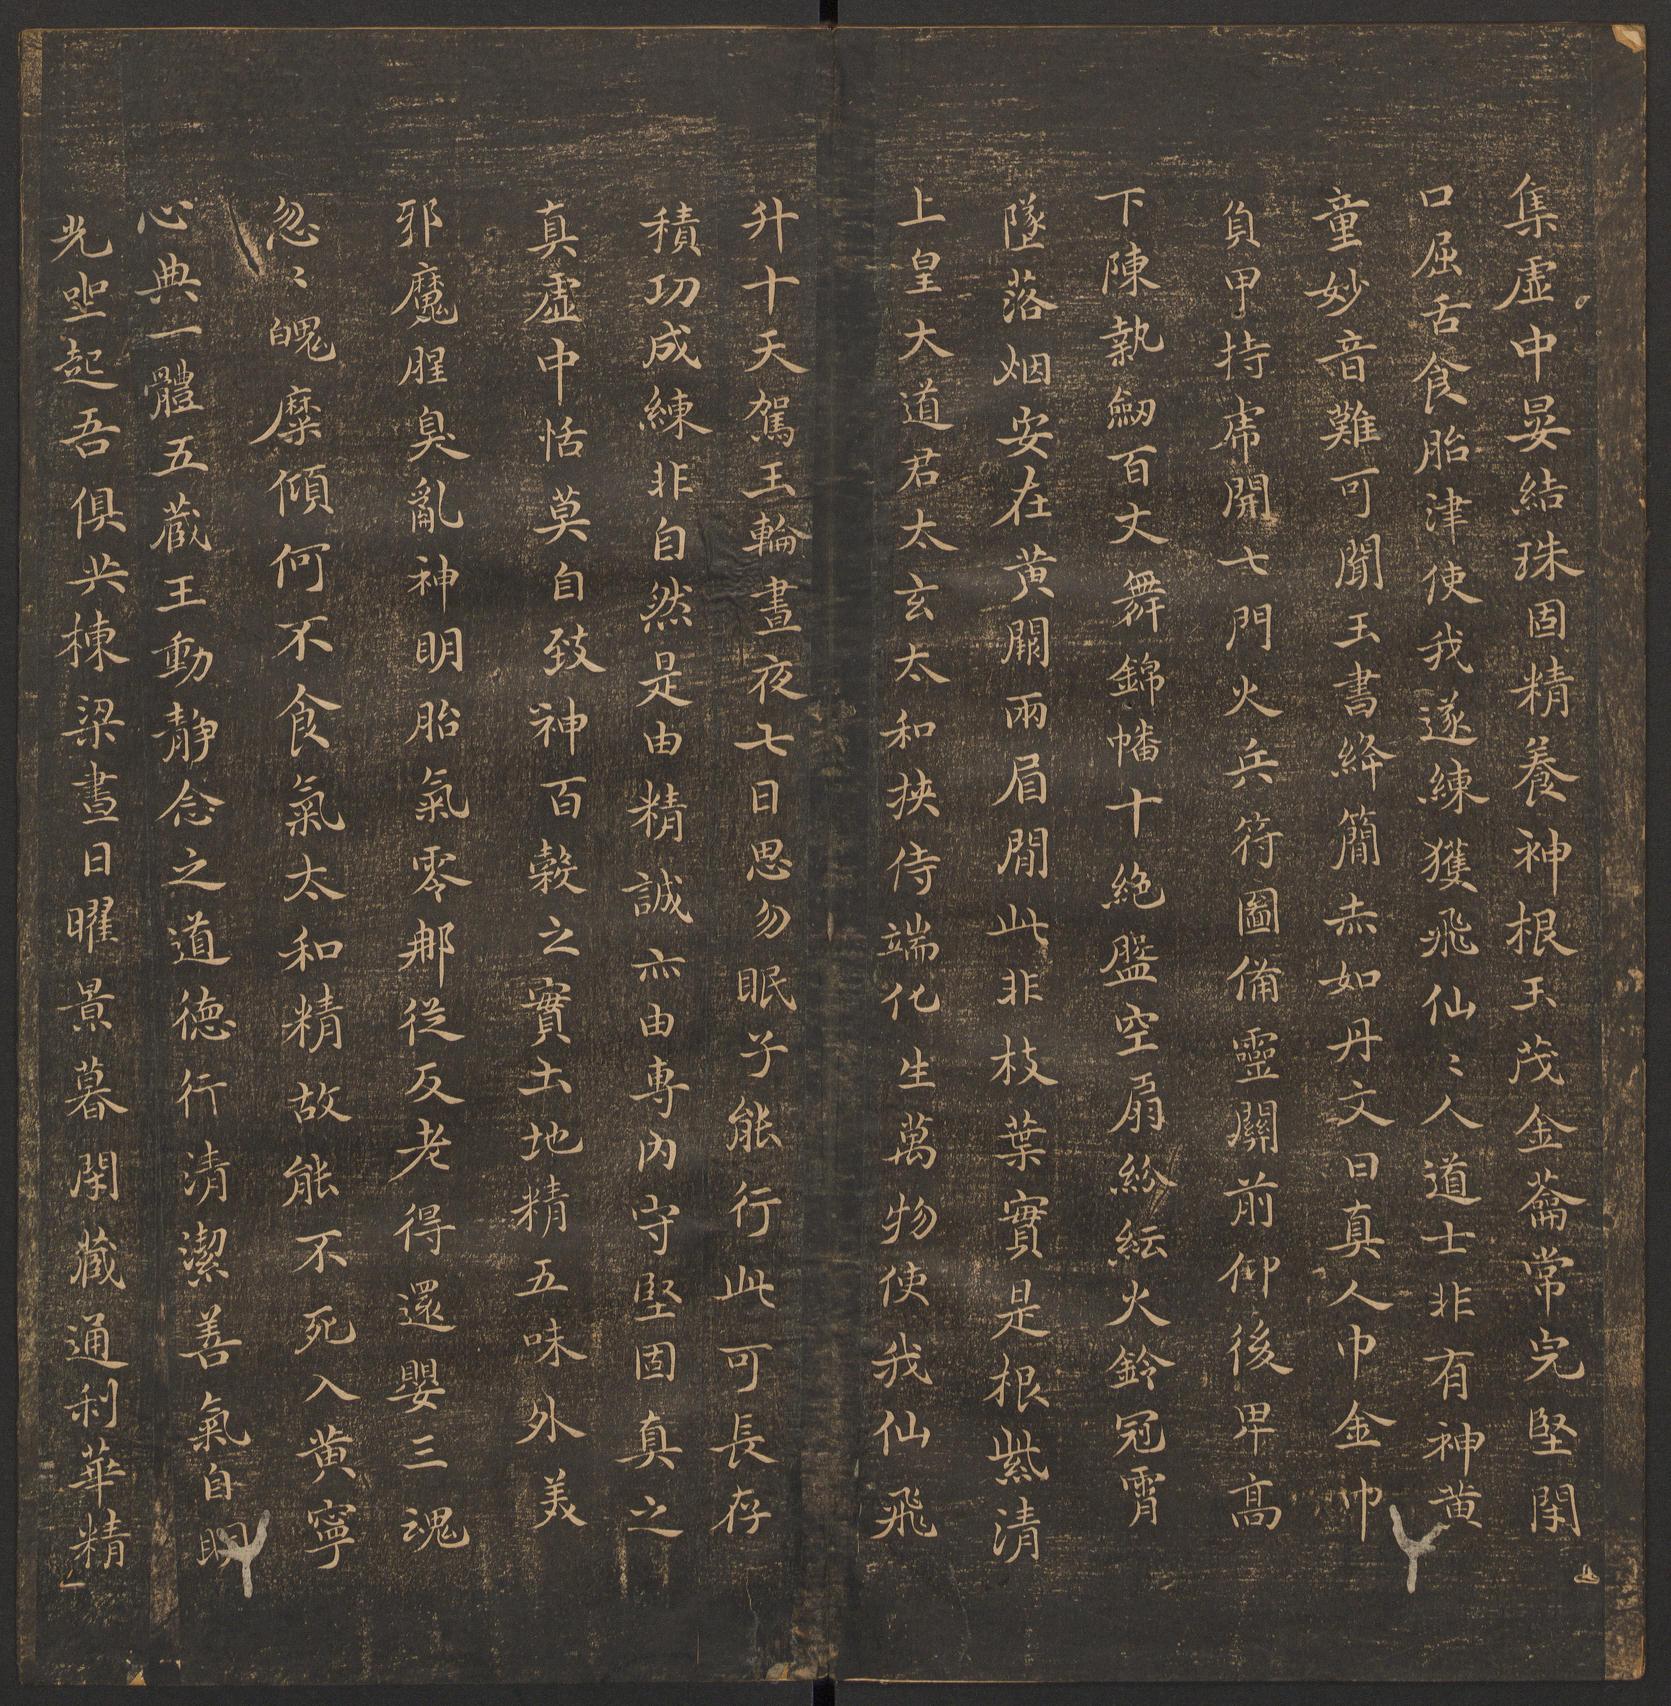 集虛中晏結珠固精養神根玉茂金蘥常完堅閇
口屈舌食胎津使我遂練獲飛仙〻人道士非有神黃
童妙音難可聞玉書絳簡赤如丹文曰真人巾金巾
負甲持虎開七門火兵符圖備靈關前仰後卑高
下陳執劒百丈舞錦幡十絕盤空扇紛紜火鈴冠霄
墜落烟安在黃闕兩眉閒此非枝葉實是根紫清
上皇大道君太玄太和挾侍端化生萬物使我仙飛
升十天駕玉輪晝夜七日思勿眠子能行此可長存
積功成練非自然是由精誠亦由專內守堅固真之
真虛中恬莫自致神百穀之實土地精五味外美
邪魔腥臭亂神明胎氣零那從反老得還嬰三魂
忽〻魄糜傾何不食氣太和精故能不死入黃寧
心典一體五藏王動靜念之道德行清潔善氣自明
光坐起吾俱共棟梁晝日曜景暮閇藏通利華精